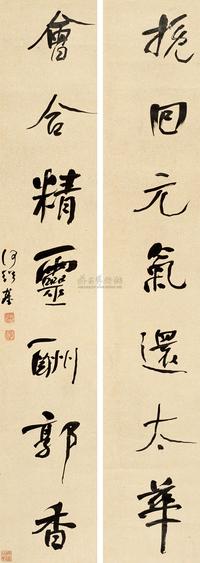 挽回元氣還太華
會合精靈酬郭香
何紹基